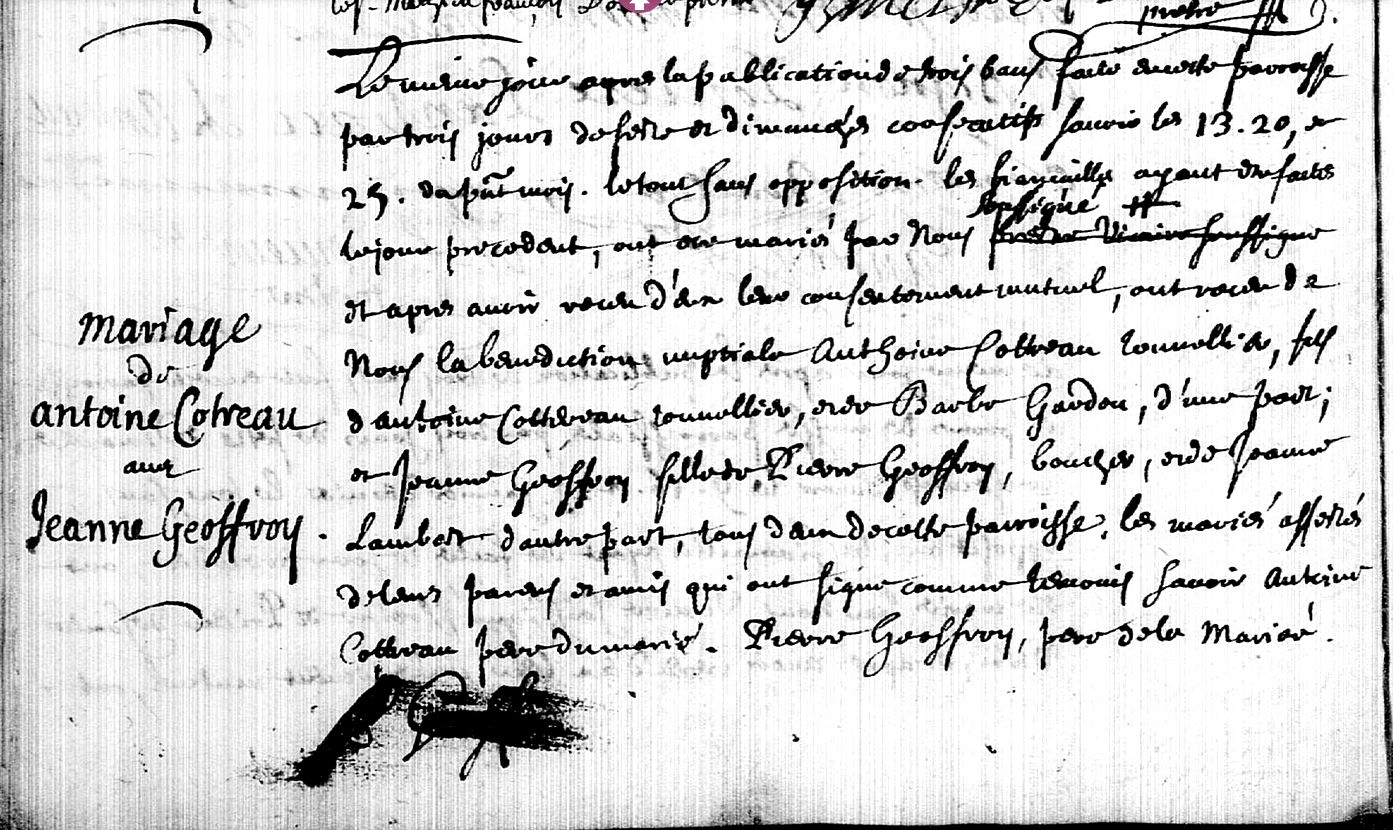 prêtre
Le meme jour apres la publication de trois bans faite en cette parroisse
par trois jours de feste et dimanches consecutifs savoir les 13. 20, et
25. du pnt mois. le tout sans opposition. les fiancailles ayant été faites
soussigné
le jour precedent, ont ete mariés par Nous prestre Vicaire soussigne
et apres avoir receu d'eux leur consentement mutuel, ont receu de
Nous la benediction nuptiale Anthoine Cottreau tonnellier, fils
d'antoine Cottereau tonnellier, et de Barbe Gardou, d'une part;
et Jeanne Geoffroy fille de Pierre Geoffroy, boucher, et de Jeanne
Lambert d'autre part, tous deux de cette parroisse. les mariés assistés
de leurs parens et amis qui ont signé comme temoins savoir Antoine
Cottreau pere du marié. Pierre Geoffroy, pere de la Mariée.
mariage
de
antoine Cotreau
avec
Jeanne Geoffroy.